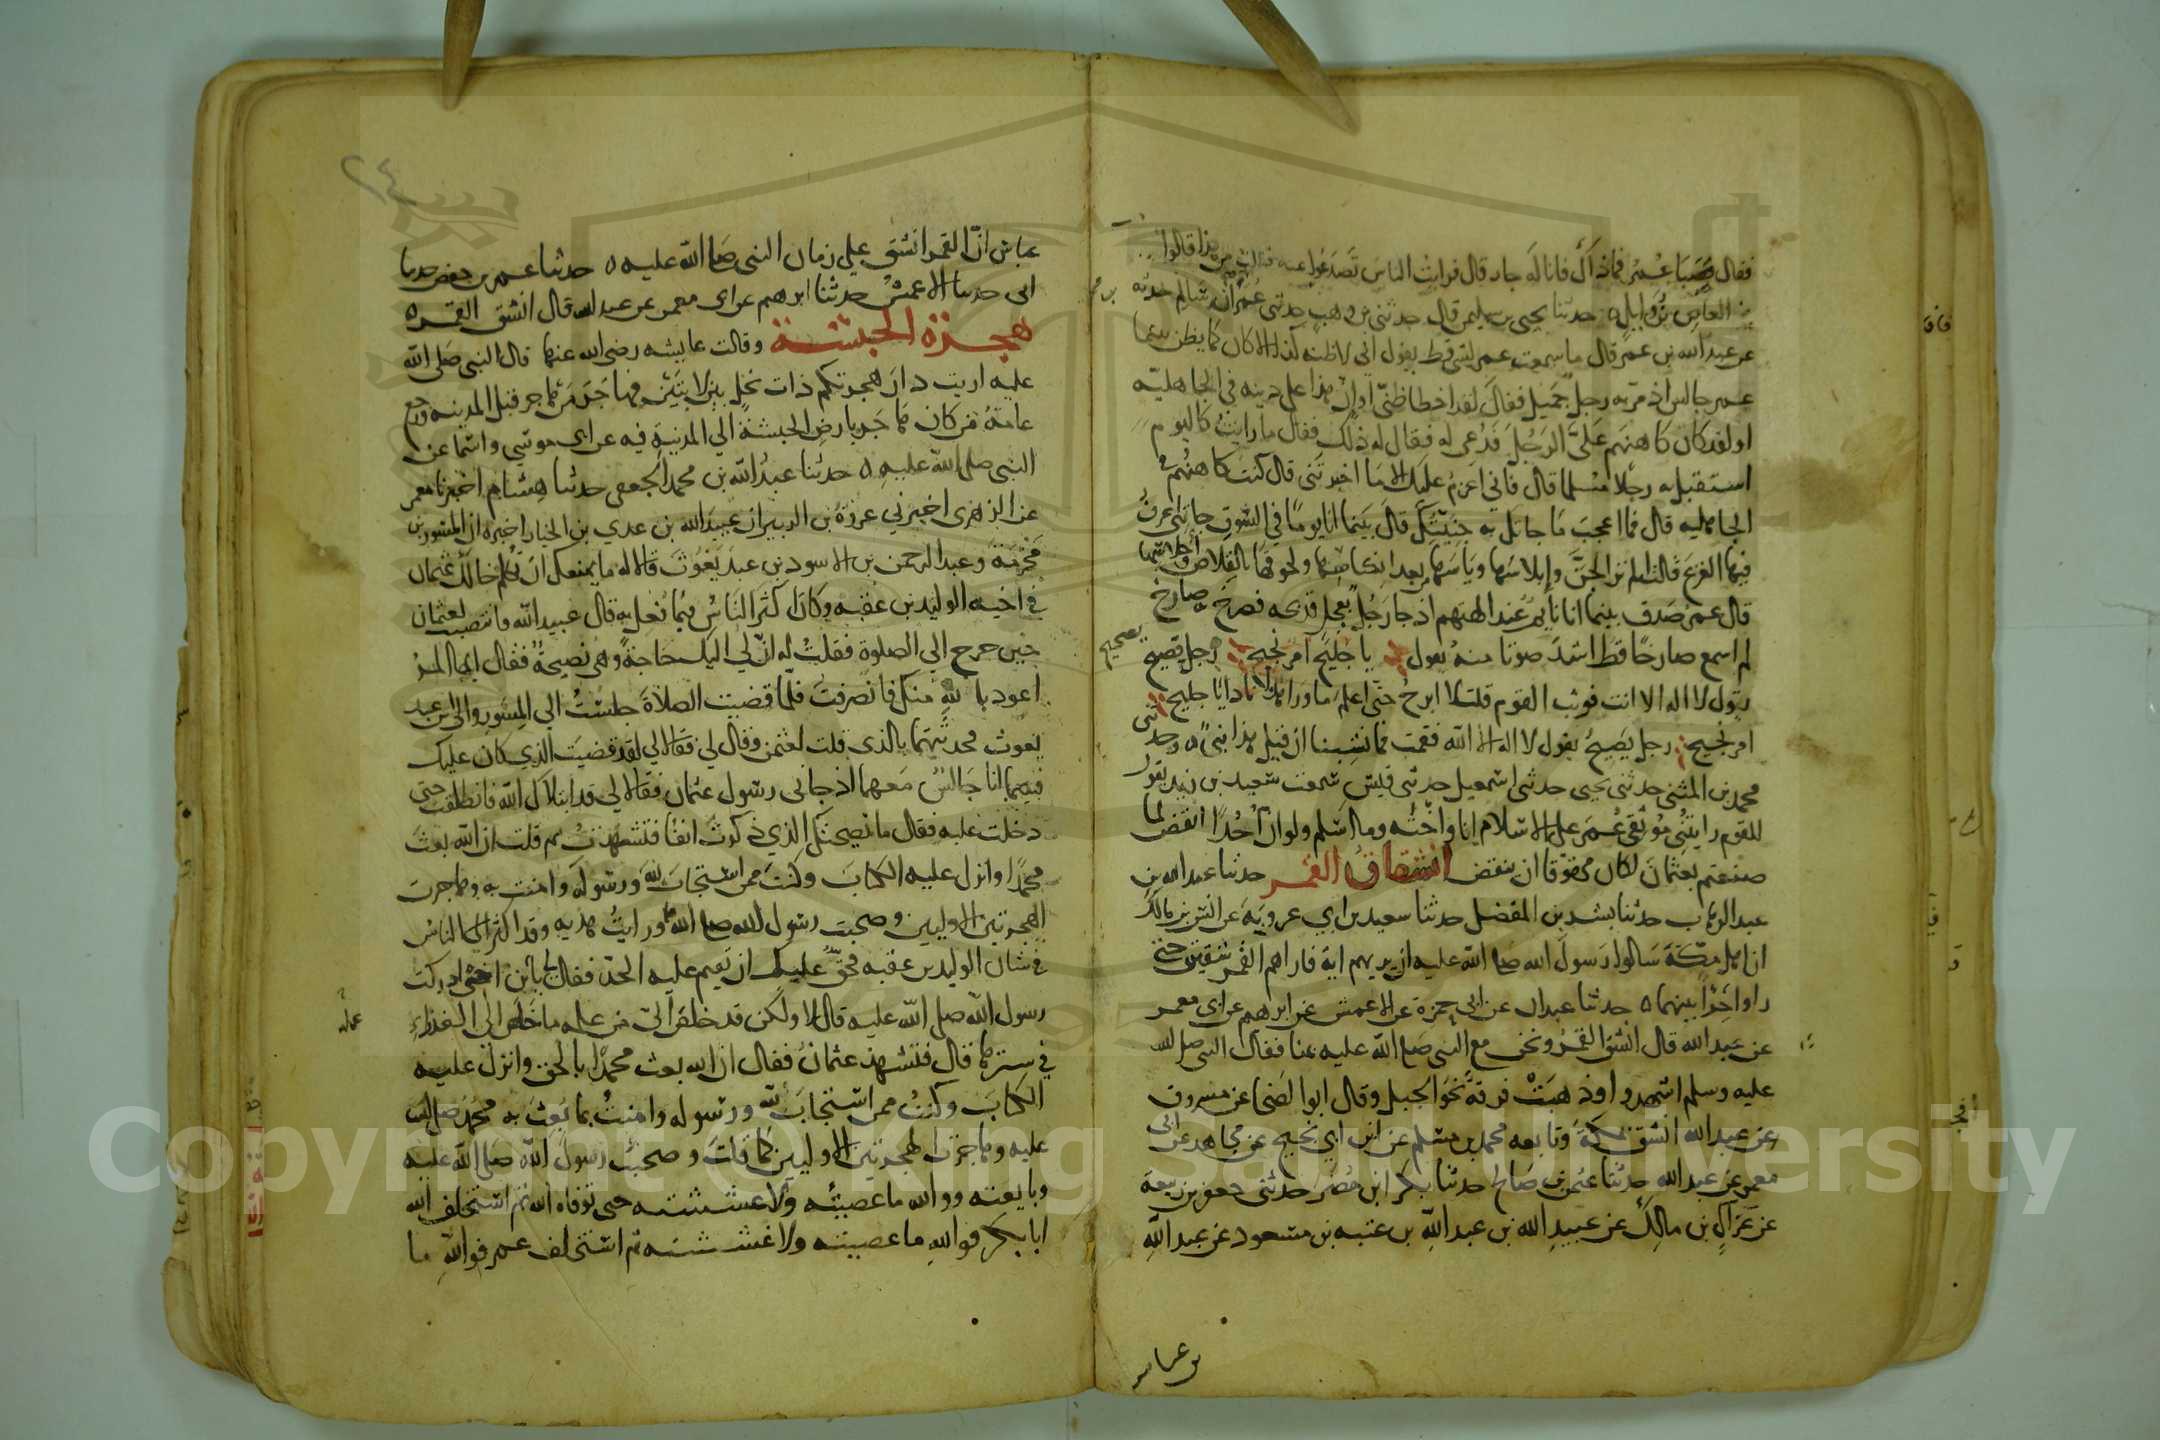 فقال صبا عمر فماذاك فانا له جار قال فرايت الناس تصدعوا عنه فقلت من هذا قالوا
العاص بن وايل ه حدثنا يحيى بن سليمن قال حدثني بن وهب حدثني عمر ان سالم حدثه
عن عبد الله بن عمر قال ما سمعت عمر لشي قط يقول اني لاظنه كذا الا كان كما يظن بينما
عمر جالس اذ مر به رجل جميل فقال لقد اخطا ظني او ان هذا على دينه في الجاهلية
او لقد كان كاهنهم علي الرجل فدعي له فقال له ذلك فقال ما رايت كاليوم
استقبل به رجلا مسلما قال فاني اعزم عليك الا ما اخبرتني قال كنت كاهنهم في
الجاهلية قال فما اعجب ما جاتك به جنيتك قال بينما انا يوما في السوق جاتني اعرف
فيها الفزع قالت الم تر الجن وابلاسها وياسها بعد انكاسها ولحوقها بالقلاص واحلاسها
قال عمر صدق بينما انا نايم عند الهتهم اذ جا رجل بعجل فذبحه فصرخ به صارخ
لم اسمع صارخا قط اشد صوتا منه يقول يا جليح امر نجيح رجل فصيح
يقول لا اله الا انت فوثب القوم قلت لا ابرح حتى اعلم ما ورا هذا ثم نادا يا جليح
امر نجيح رجل يصيح يقول لا اله الا الله فقمت فما نشبنا ان قيل هذا نبي ه وحدثني
محمد بن المثنى حدثنى يحيى حدثنى اسمعيل حدثنى قيس سمعت سعيد بن زيد يقول
للقوم رايتني موثقي عمر على الاسلام انا واخته وما اسلم ولو ان احدا انقض لما
صنعتم بعثمان لكان محقوقا ان ينقض انشقاق القمر حدثنا عبد الله بن
عبد الوهاب حدثنا بشر بن المفضل حدثنا سعيد بن ابي عروبة عن انس بن مالك
ان اهل مكة سالوا رسول الله صلى الله عليه ان يريهم اية فاراهم القمر شقتين حتى
راوا حرا بينهما ه حدثنا عبدان عن ابي حمزة عن الاعمش عن ابرهيم عن ابي معمر
عن عبد الله قال انشق القمر ونحن مع النبي صلى الله عليه بمنا فقال النبي صلى الله
عليه وسلم اشهدوا وذهبت فرقة نحو الجبل وقال ابوا الضحى عن مسروق
عن عبد الله انشق بمكة وتابعه محمد بن مسلم عن ابن ابي نجيح عن مجاهد عن ابي
معمر عن عبد الله حدثنا عثمن بن صالح حدثنا بكر ابن مضر حدثني جعفر بن ربيعة
عن عراك بن مالك عن عبيد الله بن عبد الله بن عتبه بن مسعود عن عبد الله
بن عباس
عباس ان القمر انشق على زمان النبي صلى الله عليه ه حدثنا عمر بن حفص حدثنا
ابي حدثنا الاعمش حدثنا ابرهيم عن ابي معمر عن عبد الله قال انشق القمر ه
هجرة الحبشة وقالت عايشه رضى الله عنها قال النبي صلى الله
عليه اريت دار هجرتكم ذات نخل بين لابتين فهاجر من هاجر قبل المدينه ورجع
عامة من كان هاجر بارض الحبشة الي المدينة فيه عن ابي موسي واسما عن
النبي صلى الله عليه ه حدثنا عبد الله بن محمد الجعفى حدثنا هشام اخبرنا معمر
عن الزهرى اخبرني عروة بن الزبير ان عبيد الله بن عدي بن الخيار اخبره ان المسور بن
مخرمة وعبد الرحمن بن الاسود بن عبد يغوث قالا له ما يمنعك ان تكلم خالك عثمان
في اخيه الوليد بن عقبه وكان اكثر الناس فيما فعل به قال عبيد الله فانتصبت لعثمان
حين خرج الي الصلوة فقلت له ان لي اليك حاجة وهي نصيحة فقال ايها المر
اعوذ بالله منك فانصرفت فلما قضيت الصلاة جلست الي المسور والى ابن عبد
يغوث فحدثتهما بالذى قلت لعثمن وقال لي فقالا لي لقد قضيت الذي كان عليك
فبينما انا جالس معهما اذ جانى رسول عثمان فقالا لي قد ابتلاك الله فانطلقت حتى
دخلت عليه فقال ما نصيحتك الذي ذكرت انفا فتشهدت ثم قلت ان الله بعث
محمدا وانزل عليه الكتاب وكنت ممن استجاب لله ورسوله وامنت به وهاجرت
الهجرتين الاوليين وصحبت رسول الله صلى الله ورايت هديه وقد اكثر الناس
في شان الوليد بن عقبه فحق عليك ان تقيم عليه الحد فقال لي يابن اختى ادركت
رسول الله صلى الله عليه قال لا ولكن قد خلص الي من علمه ما خلص الى العذراء
في سترها قال فتشهد عثمان فقال ان الله بعث محمدا بالحق وانزل عليه
الكتاب وكنت ممن استجاب لله ورسوله وامنت بما بعث به محمد صلى الله
عليه وهاجرت الهجرتين الاوليين كما قلت وصحبت رسول الله صلى الله عليه
وبايعته ووالله ما عصيته ولا غششته حتى توفاه الله ثم استخلف الله
ابا بكر فوالله ما عصيته ولا غششته ثم استخلف عمر فوالله ما
Copyright © King Saud University